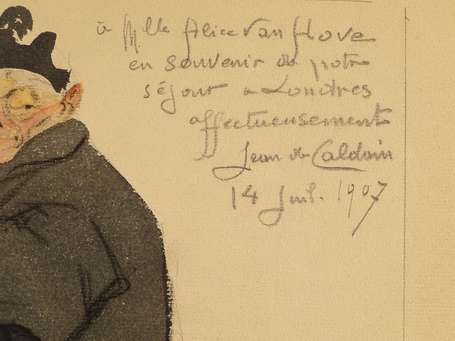 à Mlle Alice Van Hove
en souvenir de notre
séjour à Londres
affectueusement
Jean de Caldain
14 Juil. 1907